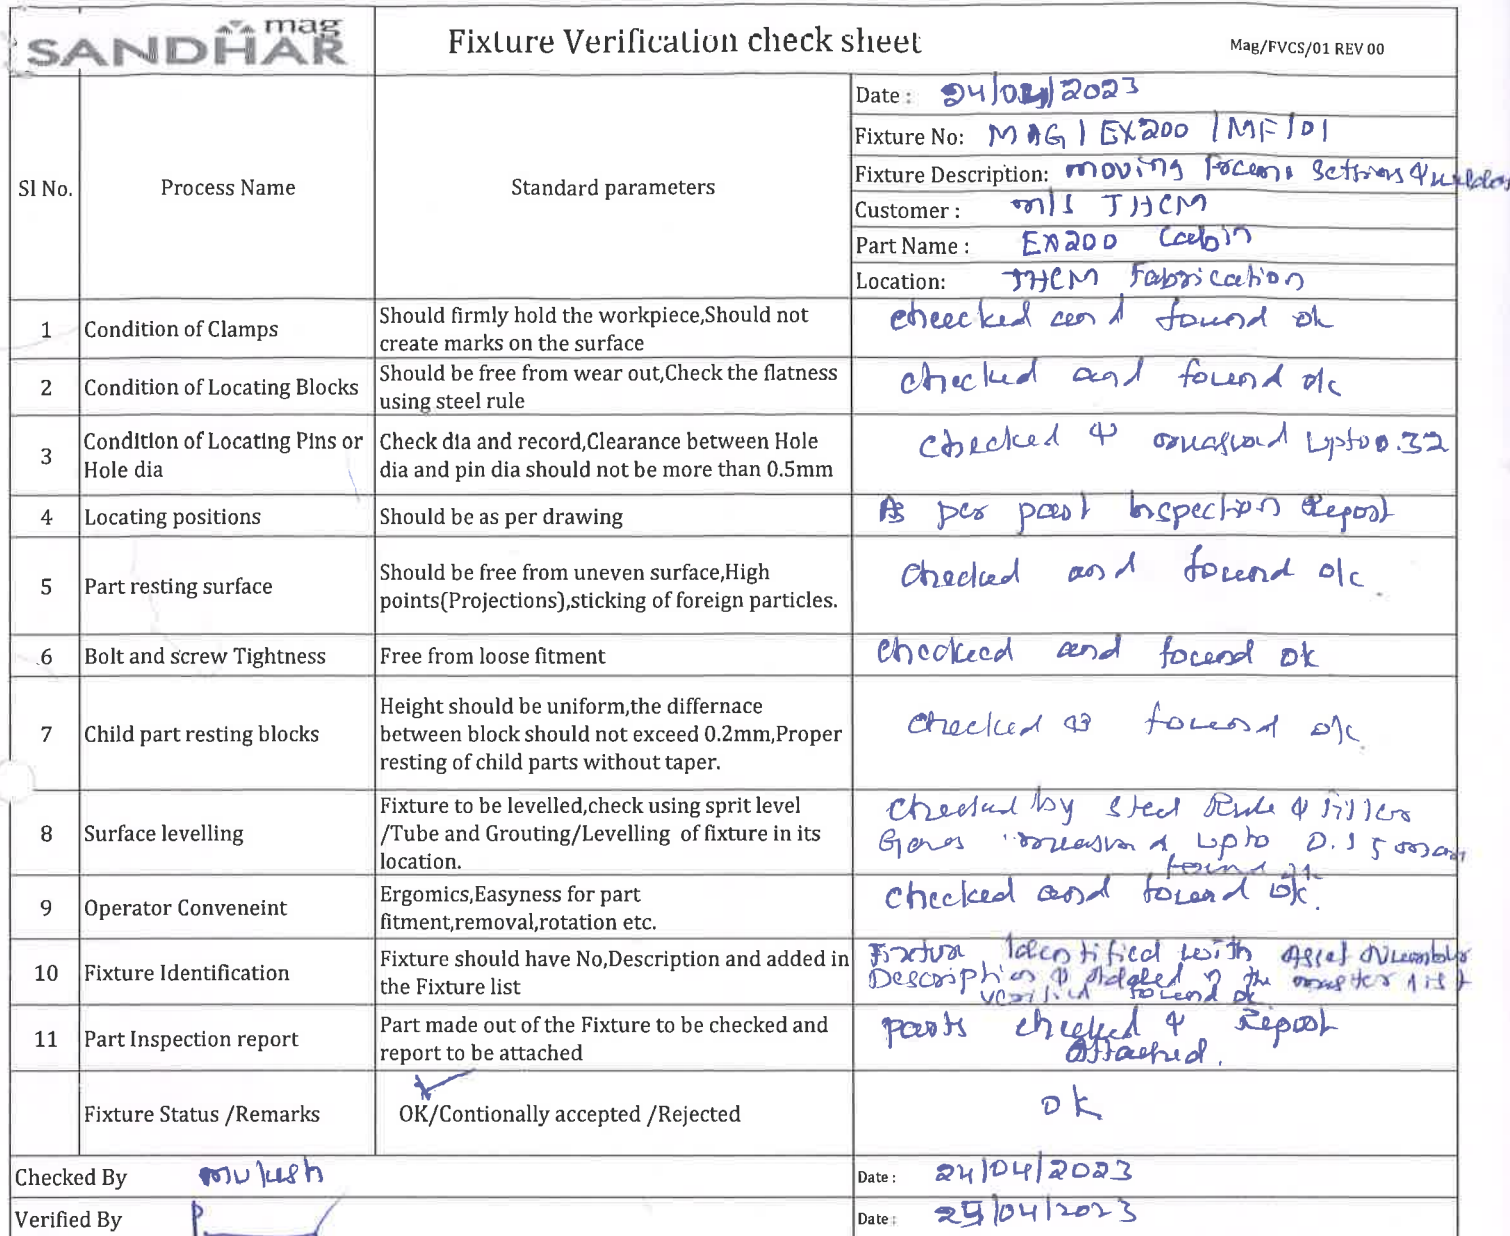 mag
SANDHAR
Fixture Verification check sheet
Mag/FVCS/01 REV 00
Sl No.
Process Name
Standard parameters
Date : 24/04/2023
Fixture No: MAG / EX200 / MF/01
Fixture Description: moving
Customer : m/s THCM
Part Name : EX200 Cabin
Location: THCM Fabrication
1
Condition of Clamps
Should firmly hold the workpiece,Should not
create marks on the surface
checked and found ok
2
Condition of Locating Blocks
Should be free from wear out,Check the flatness
using steel rule
checked and found ok
3
Condition of Locating Pins or
Hole dia
Check dia and record,Clearance between Hole
dia and pin dia should not be more than 0.5mm
checked & upto 0.32
4
Locating positions
Should be as per drawing
As per part Inspection Report
5
Part resting surface
Should be free from uneven surface,High
points(Projections),sticking of foreign particles.
checked and found ok
6
Bolt and screw Tightness
Free from loose fitment
checked and found ok
7
Child part resting blocks
Height should be uniform,the differnace
between block should not exceed 0.2mm,Proper
resting of child parts without taper.
checked & found ok
8
Surface levelling
Fixture to be levelled,check using sprit level
/Tube and Grouting/Levelling of fixture in its
location.
checked by Steel Rule &
upto 0.15 mm
found ok
9
Operator Conveneint
Ergomics,Easyness for part
fitment,removal,rotation etc.
checked and found ok.
10
Fixture Identification
Fixture should have No,Description and added in
the Fixture list
Fixture Identified with Asset Number
Description & Added in the master list
verified found ok
11
Part Inspection report
Part made out of the Fixture to be checked and
report to be attached
parts checked & Report
Attached.
Fixture Status /Remarks
OK/Contionally accepted /Rejected
ok
Checked By mukesh
Date : 24/04/2023
Verified By
Date : 25/04/2023